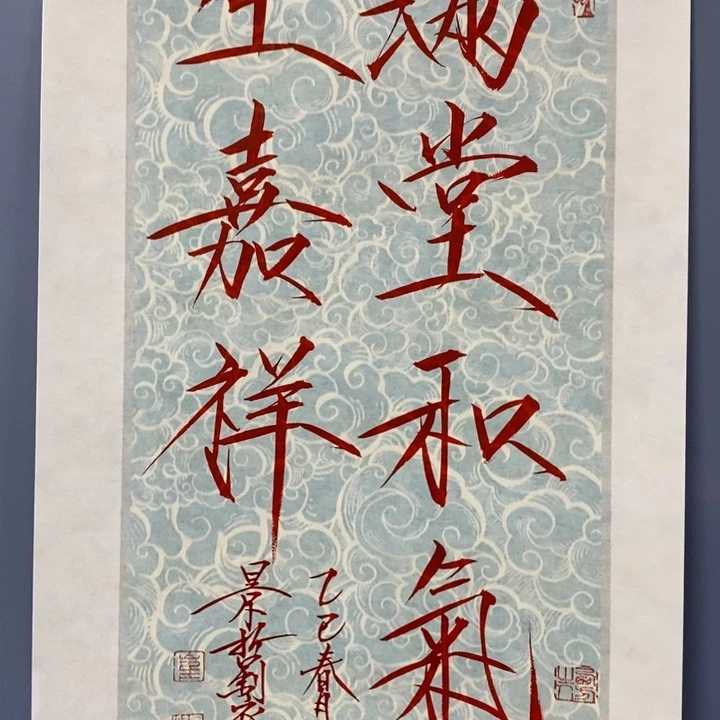 滿堂和氣
生嘉祥
乙巳春月